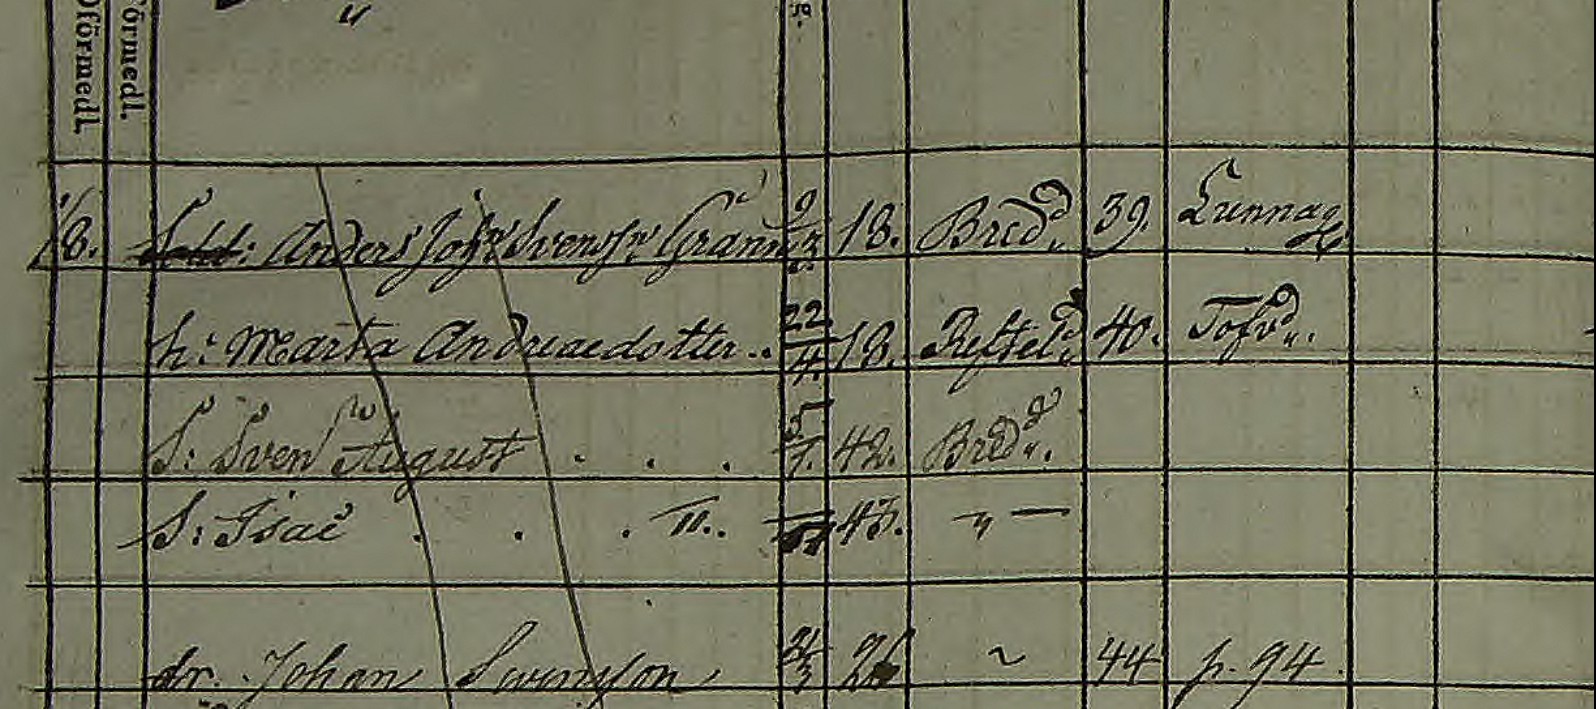 Oförmedl. Förmedl.
1/8. Sold: Anders Joh:n Svens:n Grann 9/3 18. Bred.d 39. Lunnag
h: Marta Andreaedotter .. 22/4. 18. Reftel.d 40. Tofr.d.
S: Sven August . . . 5/7. 42. Bred.d.
S: Isac . . . 43. — " —
dr. Johan Svenson 21/3 26 ~ 44 p. 94.